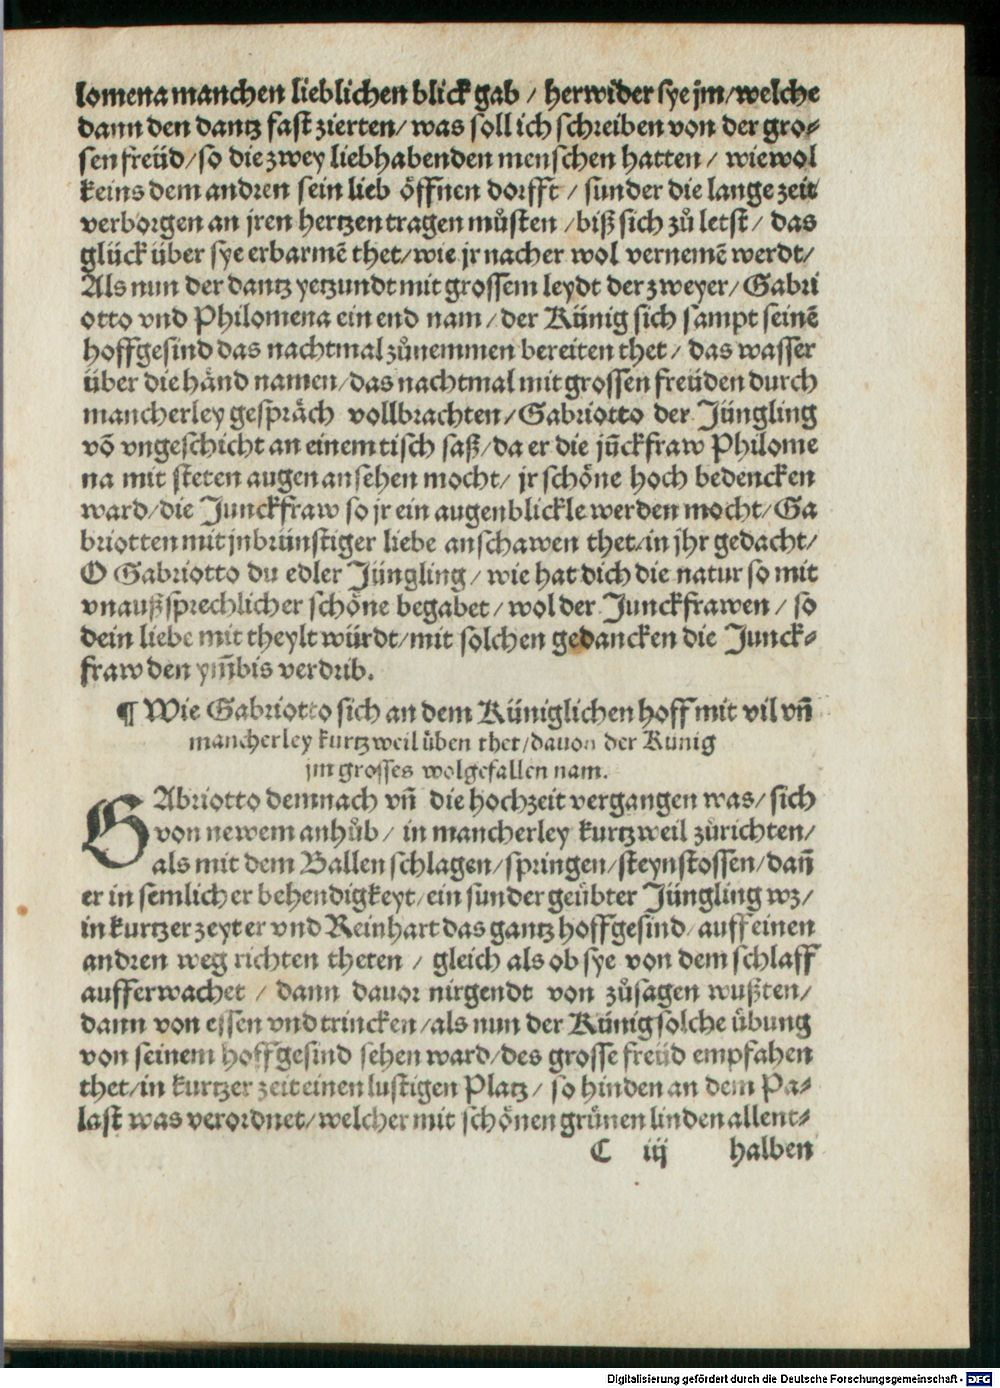 lomena manchen lieblichen blick gab / herwider sye jm / welche
dann den dantz fast zierten / was soll ich schreiben von der gro⸗
sen freüd / so die zwey liebhabenden menschen hatten / wiewol
keins dem andren sein lieb öffnen dorfft / sunder die lange zeit
verborgen an jren hertzen tragen můsten / biß sich zů letst / das
glück über sye erbarmẽ thet / wie jr nacher wol vernemẽ werdt /
Als nun der dantz yetzundt mit grossem leydt der zweyer / Gabri
otto vnd Philomena ein end nam / der Künig sich sampt seinẽ
hoffgesind das nachtmal zůnemmen bereiten thet / das wasser
über die händ namen / das nachtmal mit grossen freüden durch
mancherley gespräch vollbrachten / Gabriotto der Jüngling
võ vngeschicht an einem tisch saß / da er die jũckfraw Philome
na mit steten augen ansehen mocht / jr schöne hoch bedencken
ward / die Junckfraw so jr ein augenblickle werden mocht / Ga
briotten mit jnbrünstiger liebe anschawen thet / in jhr gedacht /
O Gabriotto du edler Jüngling / wie hat dich die natur so mit
vnaußsprechlicher schöne begabet / wol der Junckfrawen / so
dein liebe mit theylt würdt / mit solchen gedancken die Junck⸗
fraw den ym̃bis verdrib.
¶ Wie Gabriotto sich an dem Küniglichen hoff mit vil vñ
mancherley kurtzweil üben thet / davon der Künig
jm grosses wolgefallen nam.
GAbriotto demnach vñ die hochzeit vergangen was / sich
von newem anhůb / in mancherley kurtzweil zůrichten /
als mit dem Ballen schlagen / springen / steynstossen / dañ
er in semlicher behendigkeyt / ein sunder geübter Jüngling wz /
in kurtzer zeyt er vnd Reinhart das gantz hoffgesind / auff einen
andren weg richten theten / gleich als ob sye von dem schlaff
aufferwachet / dann davor nirgendt von zůsagen wußten /
dann von essen vnd trincken / als nun der Künig solche übung
von seinem hoffgesind sehen ward / des grosse freüd empfahen
thet / in kurtzer zeit einen lustigen Platz / so hinden an dem Pa⸗
last was verordnet / welcher mit schönen grünen linden allent⸗
C iij halben
Digitalisierung gefördert durch die Deutsche Forschungsgemeinschaft - DFG